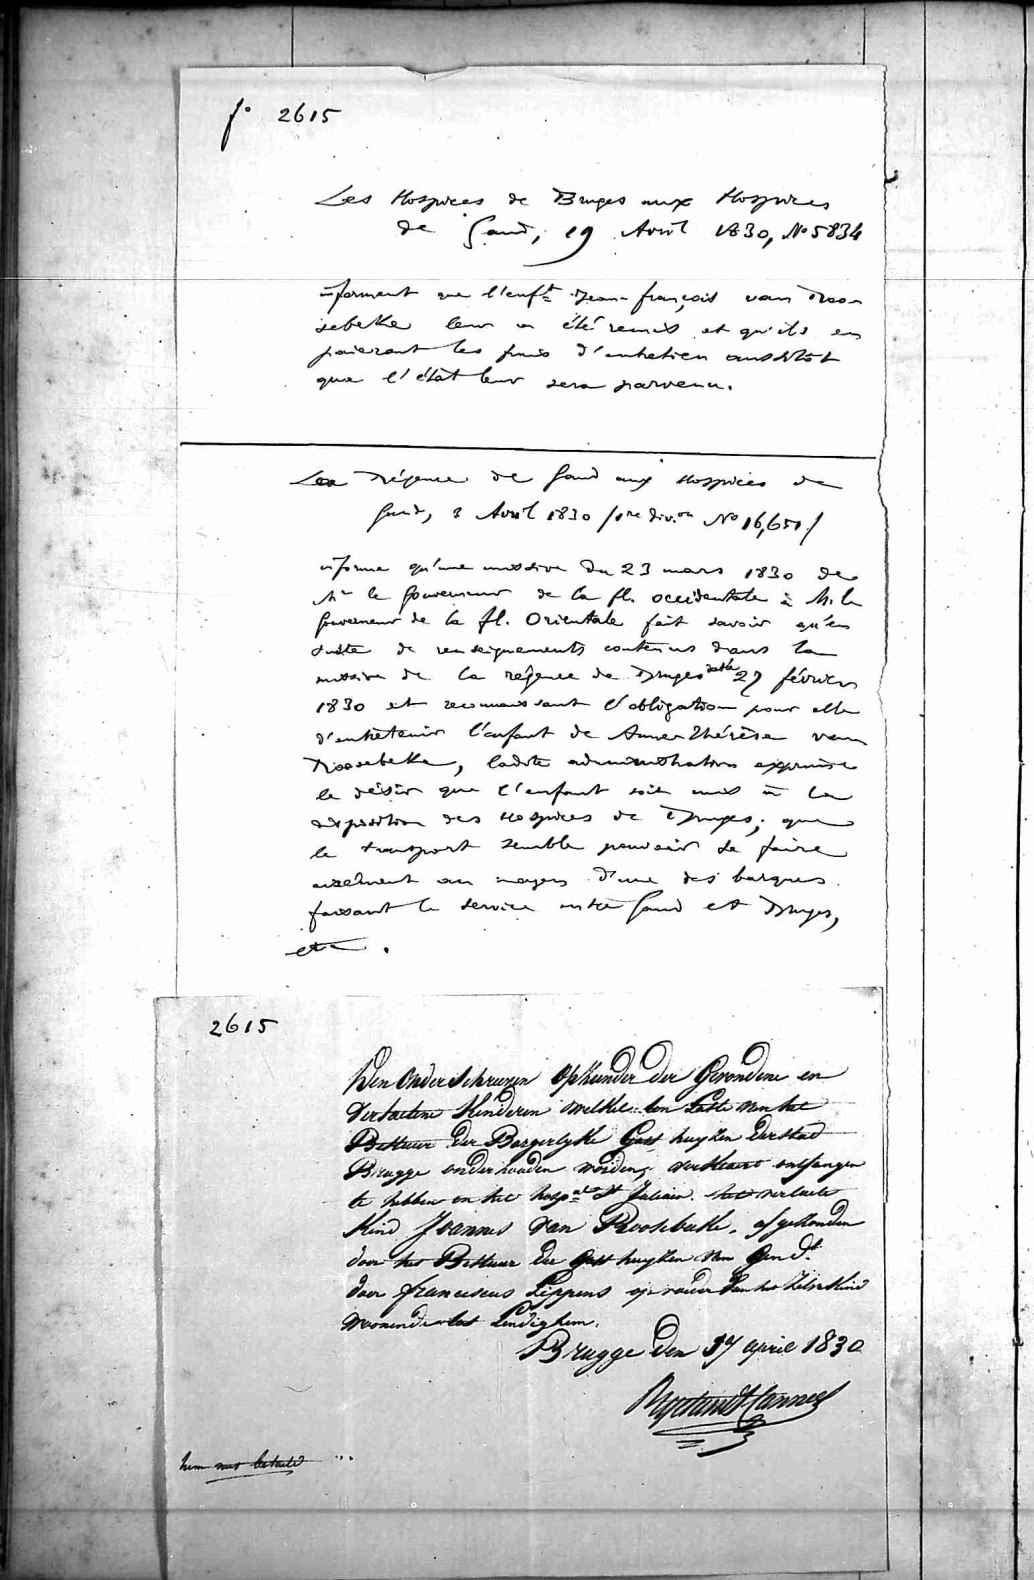 f° 2615
Les Hospices de Bruges aux Hospices
de Gand, 19 Avril 1830, N° 5834
informent que l'enft Jean-françois van Roo-
sebeke leur a été remis et qu'ils en
paieront les frais d'entretien aussitôt
que l'état leur sera parvenu.
La Régence de Gand aux Hospices de
Gand, 3 Avril 1830 /1re divon N° 16,651/
informe qu'une missive du 23 mars 1830 de
Mr le Gouverneur de la fl. occidentale à M. le
Gouverneur de la fl. Orientale fait savoir qu'en
suite de renseignements contenus dans la
missive de la régence de Bruges datée 27 février
1830 et reconnaissant l'obligation pour elle
d'entretenir l'enfant de Anne-Thérèse van
Roosebeke, ladite administration exprime
le désir que l'enfant soit mis à la
disposition des Hospices de Bruges; que
le transport semble pouvoir se faire
aisément au moyen d'une des barques
faisant le service entre Gand et Bruges,
etc.
2615
Den Onderschreven Opziender der Gevondene en
Verlaetene Kinderen welke ten Laste van het
Bestuur der Borgerlyke Gast huyzen der stad
Brugge onderhouden worden, verklaert ontfangen
te hebben in het hospal St Juliaen het verlaete
Kind Joannes Van Roosebeke, afgezonden
door het Bestuur der Gast huyzen van Gend.t
door franciscus Lippens op voeder van het zelve Kind
woonende tot Lendighem.
Brugge den 17 april 1830
hem was betaeld